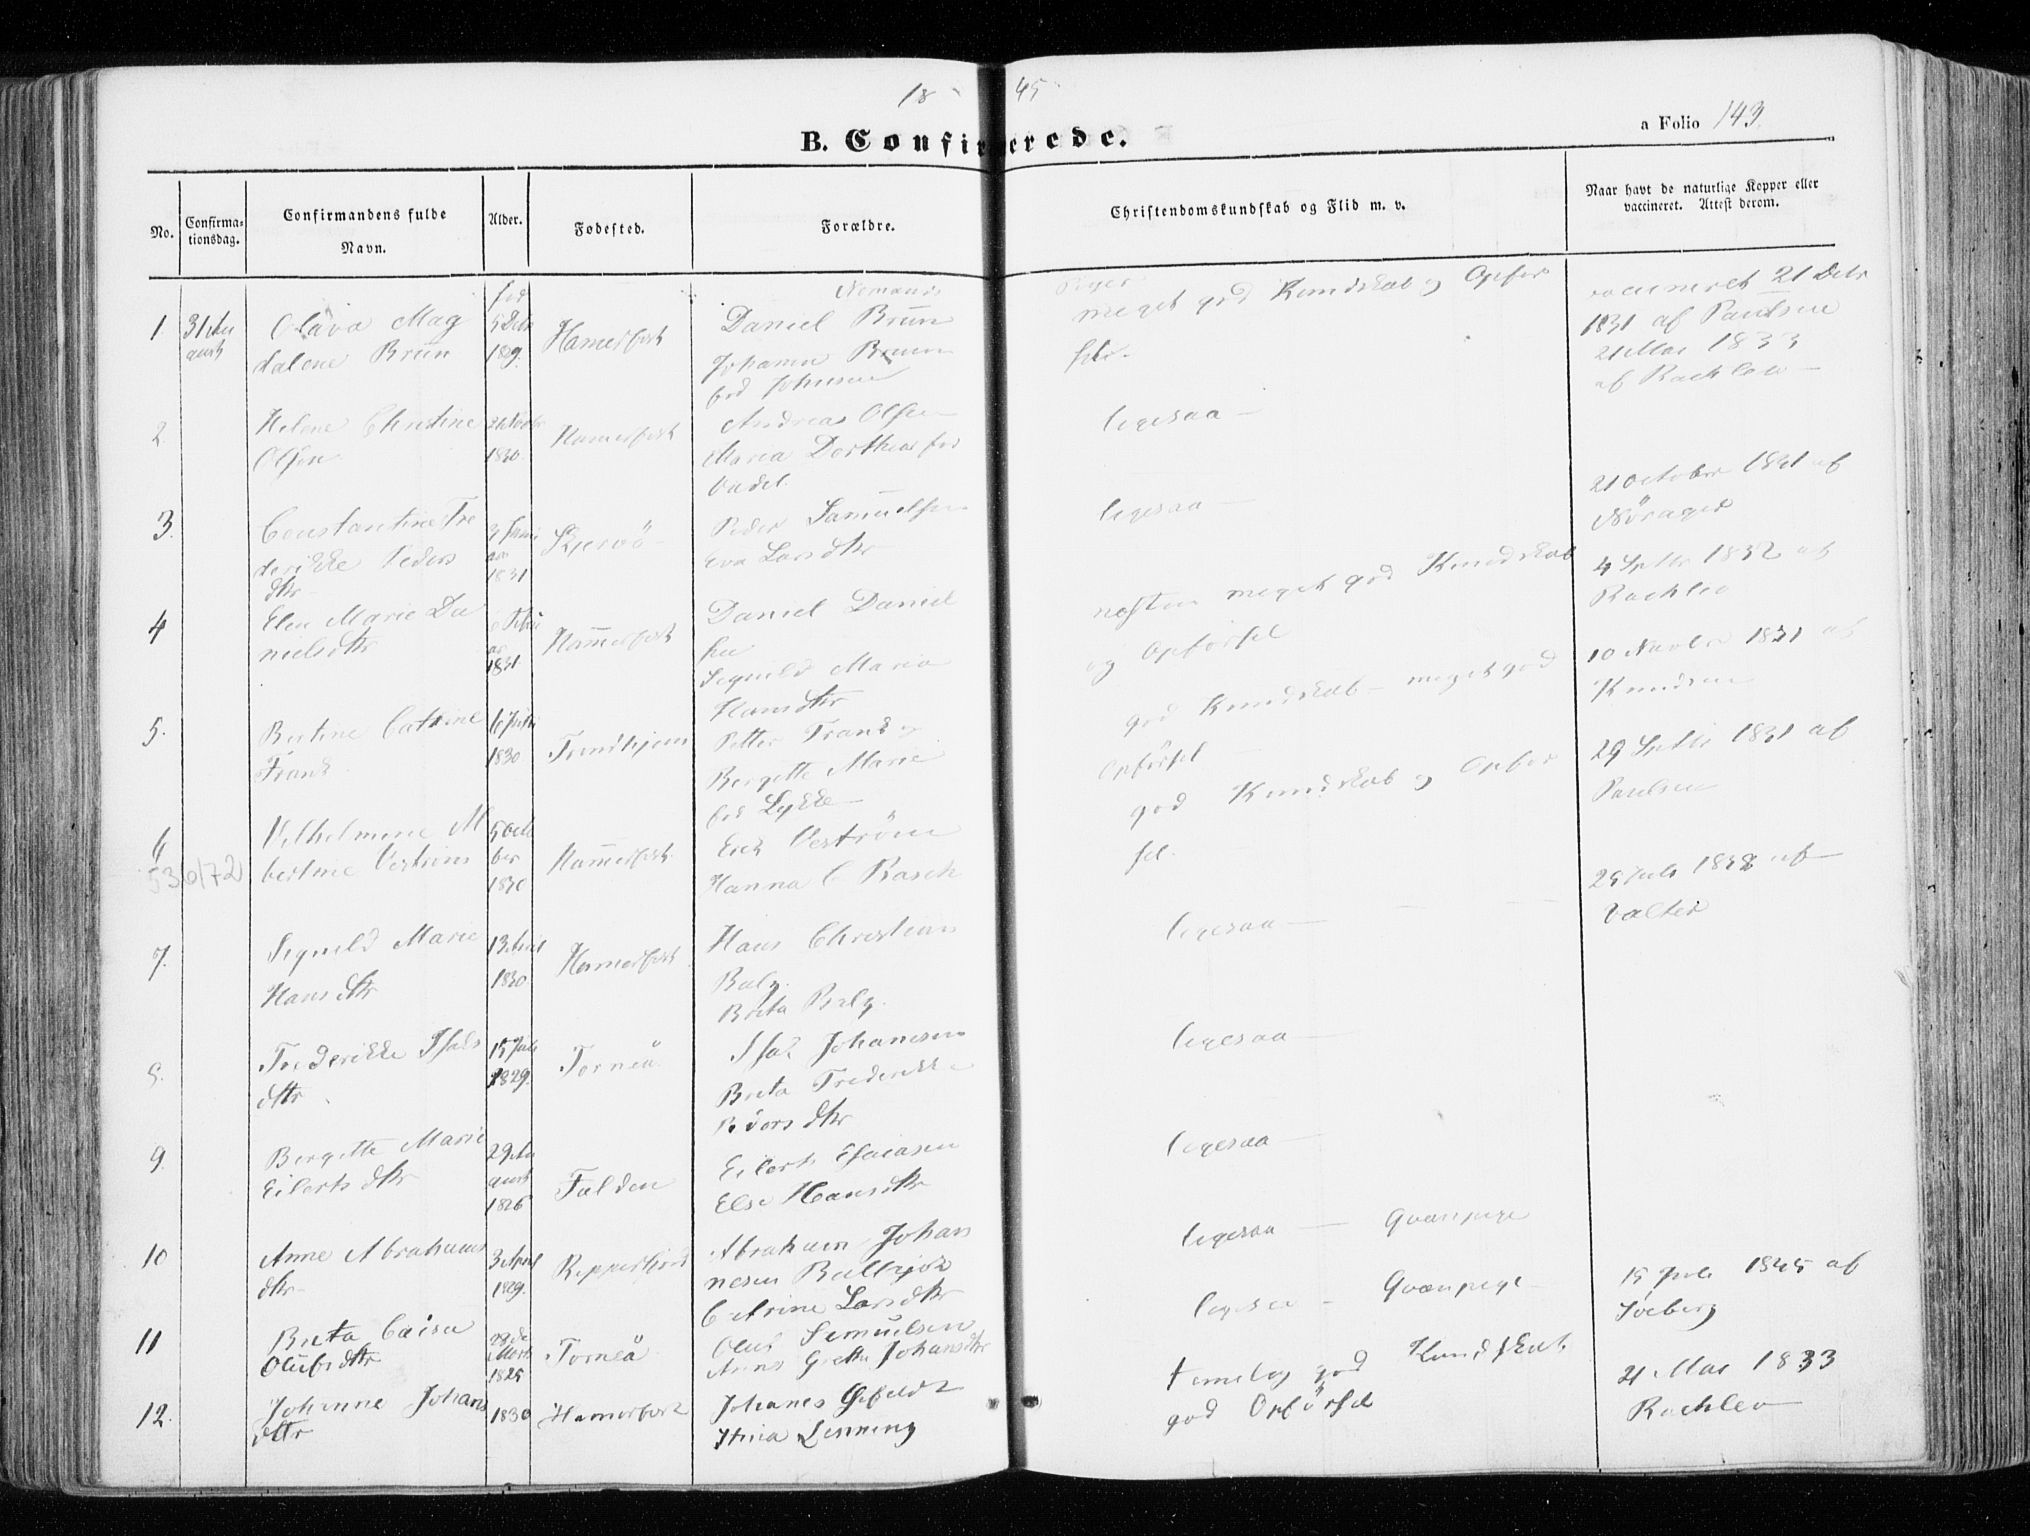 18 45
B. Confirmerede.
a Folio 143.
No.
Confirma-
tionsdag.
Confirmandens fulde
Navn.
Alder.
Fødested.
Forældre.
Christendomskundskab og Flid m. v.
Naar havt de naturlige Kopper eller
vaccineret. Attest derom.
1 31 Au
gust
Olava Mag
dalene Brun
fød
5 Debr
1829.
Hamerfest
Daniel Brun
Johanna Bruun
fød Johnsen
Piger
meget god Kundskab og Opfør
sel.
vaccineret 21 Debr
1831 af Paulsen
2.
Helene Christine
Olsen
1830.
Hamerfest
Andreas Olsen
Maria Dorthea fød
ligesaa —
21 Mai 1833
af Rachlew —
3.
Constantine Fre
derikke Peders
dtr
1831
Skjervö
Peder Samuelsen
Eva Larsdtr
ligesaa —
21 october 1831 af
Nörager
4
Elen Marie Da
nielsdtr
1831
Hammerfest
Daniel Daniel
sen
Signild Maria
Hansdtr
næsten meget god Kundskab
og Opførsel
4 Septbr 1832 af
Rachlew
5.
Bertine Cathrine
Frank
1830
Trondhjem
Petter Frank og
Bergitte Marie
fød Lykke —
god Kundskab — meget god
Opførsel —
10 Novbr 1831 af
Knudsen
6
536/72
Vilhelmine Al
bertine Veström
5 Octo
ber
1830
Hammerfest
Erik Veström
Hanna C Rasch
god Kundskab og Opfør
sel.
29 Septbr 1831 af
Paulsen
7.
Signild Marie
Hansdtr
13 April
1830
Hamerfest
Hans Christian
Balg.
Brita Balg.
ligesaa —
25 Juli 1832 af
Valter
8.
Frederikke Isaks
dttr
15 Juli
1829.
Torneå
Isak Johansen
Breta Frederikke
ligesaa —
9.
Bergitte Marie
Eilertsdtr
29 Au
gust
1826
Falden
Eilert Esaiasen
Else Hansdtr
ligesaa —
10
Anne Abrahams
dtr
3 April
1829.
Repperfjord
Abraham Johan
nesen Ballojok
Catrine Larsdtr
ligesaa — Qvænpige
11
Breta Caisa
Olufsdttr
29de
Marts
1825
Torneå
Oluf Samuelsen
Anna Gretha Johansdtr
ligesaa — Qvænpige
15 Juli 1845 af
Soeberg
12.
Johanne Johans
dttr
1830
Hamerfest
Johanes
Stina Lenning
temelig god Kundskab
god Opførsel
21 Mai 1833
Rachlew